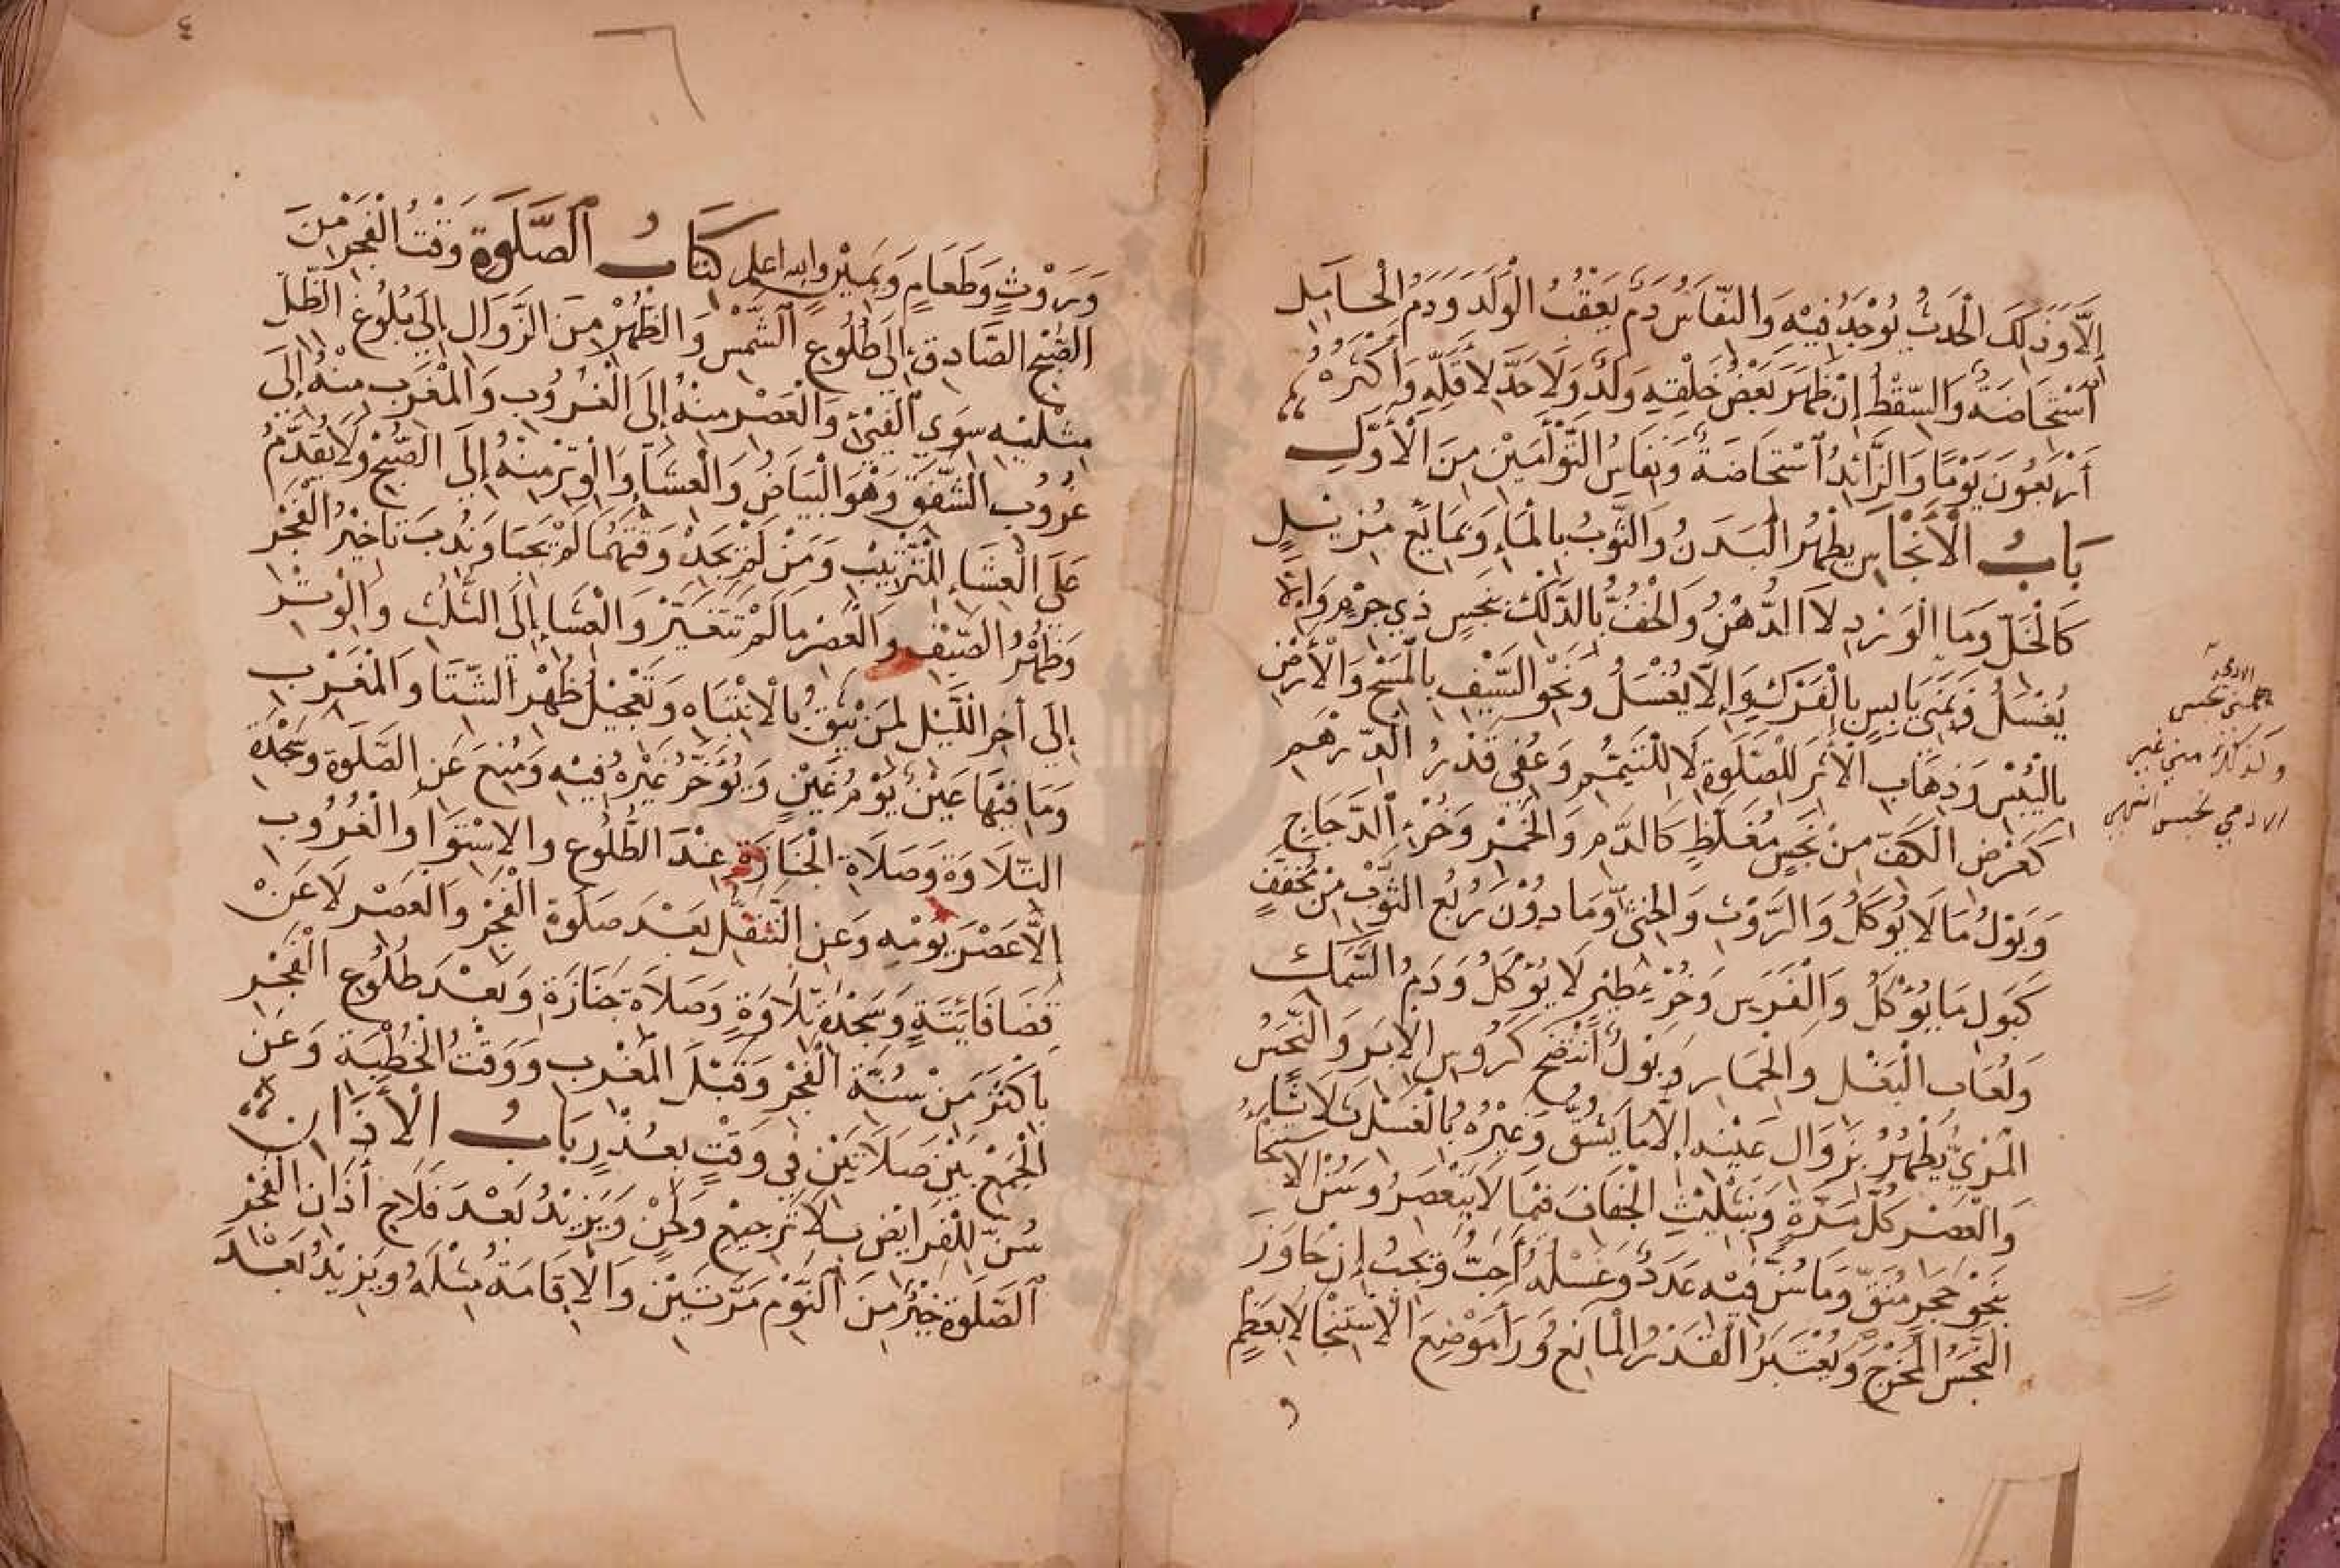 إِلَّا وَذَلِكَ الْحَدَثُ يُوْجَدُ فِيْهِ وَالنِّفَاسُ دَمٌ يَعْقُبُ الْوَلَدَ وَدَمُ الْحَامِلِ
اسْتِحَاضَةٌ وَالسِّقْطُ إِنْ ظَهَرَ بَعْضُ خَلْقِهِ وَلَدٌ وَلَا حَدَّ لِأَقَلِّهِ وَأَكْثَرُهُ
أَرْبَعُونَ يَوْمًا وَالزَّائِدُ اسْتِحَاضَةٌ وَنِفَاسُ التَّوْأَمَيْنِ مِنَ الْأَوَّلِ
بَابُ الْأَنْجَاسِ يَطْهُرُ الْبَدَنُ وَالثَّوْبُ بِالْمَاءِ وَبِمَائِعٍ مُزِيْلٍ
كَالْخَلِّ وَمَا الْوَرْدِ لَا الدُّهْنِ وَالْخُفُّ بِالدَّلْكِ بِنَجِسٍ ذِي جِرْمٍ وَإِلَّا
يُغْسَلُ وَبِمَنِيٍّ يَابِسٍ بِالْفَرْكِ وَإِلَّا يُغْسَلُ وَنَحْوُ السَّيْفِ بِالْمَسْحِ وَالْأَرْضُ
بِالْيُبْسِ وَذَهَابِ الْأَثَرِ لِلصَّلَوةِ لَا لِلتَّيَمُّمِ وَعُفِيَ قَدْرُ الدِّرْهَمِ
كَعَرْضِ الْكَفِّ مِنْ نَجِسٍ مُغَلَّظٍ كَالدَّمِ وَالْخَمْرِ وَخُرْءِ الدَّجَاجِ
وَبَوْلُ مَا لَا يُؤْكَلُ وَالرَّوْثِ وَالْخِثْيِ وَمَا دُوْنَ رُبُعِ الثَّوْبِ مِنْ مُخَفَّفٍ
كَبَوْلِ مَا يُؤْكَلُ وَالْفَرَسِ وَخُرْءِ طَيْرٍ لَا يُؤْكَلُ وَدَمُ السَّمَكِ
وَلُعَابُ الْبَغْلِ وَالْحِمَارِ وَبَوْلٌ انْتَضَحَ كَرُؤُسِ الْإِبَرِ وَالنَّجَسُ
الْمَرْئِيُّ يَطْهُرُ بِزَوَالِ عَيْنِهِ إِلَّا مَا يَشُقُّ وَغَيْرُهُ بِالْغَسْلِ ثَلَاثًا
وَالْعَصْرِ كُلَّ مَرَّةٍ وَبِتَثْلِيْثِ الْجَفَافِ فِيْمَا لَا يَنْعَصِرُ وَسُنَّ الِاسْتِنْجَاءُ
بِنَحْوِ حَجَرٍ مُنَقٍّ وَمَا سُنَّ فِيْهِ عَدَدٌ وَغَسْلُهُ أَحَبُّ وَيَجِبُ إِنْ جَاوَزَ
النَّجَسُ الْمَخْرَجَ وَيُعْتَبَرُ الْقَدْرُ الْمَانِعُ وَرَا مَوْضِعَ الْإِسْتِنْجَا لَا بِعَظْمٍ
منى نجس
وكذلك منى غير
الادمي نجس انتهى
٤
وَرَوْثٍ وَطَعَامٍ وَيَمِيْنٍ والله اعلم كِتَابُ الصَّلَوةِ وَقْتُ الْفَجْرِ مِنَ
الصُّبْحِ الصَّادِقِ إِلَى طُلُوعِ الشَّمْسِ وَالظُّهْرِ مِنَ الزَّوَالِ إِلَى بُلُوغِ الظِّلِّ
مِثْلَيْهِ سَوَى الْفَيْءِ وَالْعَصْرِ مِنْهُ إِلَى الْغُرُوبِ وَالْمَغْرِبِ مِنْهُ إِلَى
غُرُوبِ الشَّفَقِ وَهْوَ الْبَيَاضُ وَالْعِشَاءِ وَالْوِتْرِ مِنْهُ إِلَى الصُّبْحِ وَلَا يُقَدَّمُ
عَلَى الْعِشَاءِ لِلتَّرْتِيْبِ وَمَنْ لَمْ يَجِدْ وَقْتَهُمَا لَمْ يَجِبَا وَنُدِبَ تَاخِيْرُ الْفَجْرِ
وَظُهْرُ الصَّيْفِ وَالْعَصْرِ مَا لَمْ تَتَغَيَّرْ وَالْعِشَا إِلَى الثُّلُثِ وَالْوِتْرِ
إِلَى أخر اللَّيْلِ لِمَنْ يَثِقُ بِالْإِنْتِبَاهِ وَتَعْجِيْلُ ظُهْرِ الشِّتَا وَالْمَغْرِبِ
وَمَا فِيْهَا عَيْنٌ يَوْمَ غَيْنٍ وَيُؤَخَّرُ غَيْرُهُ فِيْهِ وَمُنِعَ عَنِ الصَّلَوةِ وَسَجْدَةِ
التِّلَاوَةِ وَصَلَاةِ الْجَنَازَةِ عِنْدَ الطُّلُوعِ وَالإِسْتِوَا وَالْغُرُوبِ
إِلَّا عَصْرَ يَوْمِهِ وَعَنِ التَّنَفُّلِ بَعْدَ صَلَوةِ الْفَجْرِ وَالْعَصْرِ لَا عَنْ
قَضَا فَائِتَةٍ وَسَجْدَةِ تِلَاوَةٍ وَصَلَاةِ جَنَازَةٍ وَبَعْدَ طُلُوعِ الْفَجْرِ
بِأَكْثَرَ مِنْ سُنَّةِ الْفَجْرِ وَقَبْلَ الْمَغْرِبِ وَوَقْتُ الْخُطْبَةِ وَعَنِ
الْجَمْعِ بَيْنَ صَلَاتَيْنِ فِي وَقْتٍ بِعُذْرٍ بَابُ الْأَذَانِ
سُنَّ لِلْفَرَايِضِ بِلَا تَرْجِيْعٍ وَلَحْنٍ وَيَزِيْدُ بَعْدَ فَلَاحِ أَذَانِ الْفَجْرِ
الصَّلَوةُ خَيْرٌ مِنَ النَّوْمِ مَرَّتَيْنِ وَالْإِقَامَةُ مِثْلُهُ وَيَزِيْدُ بَعْدَ